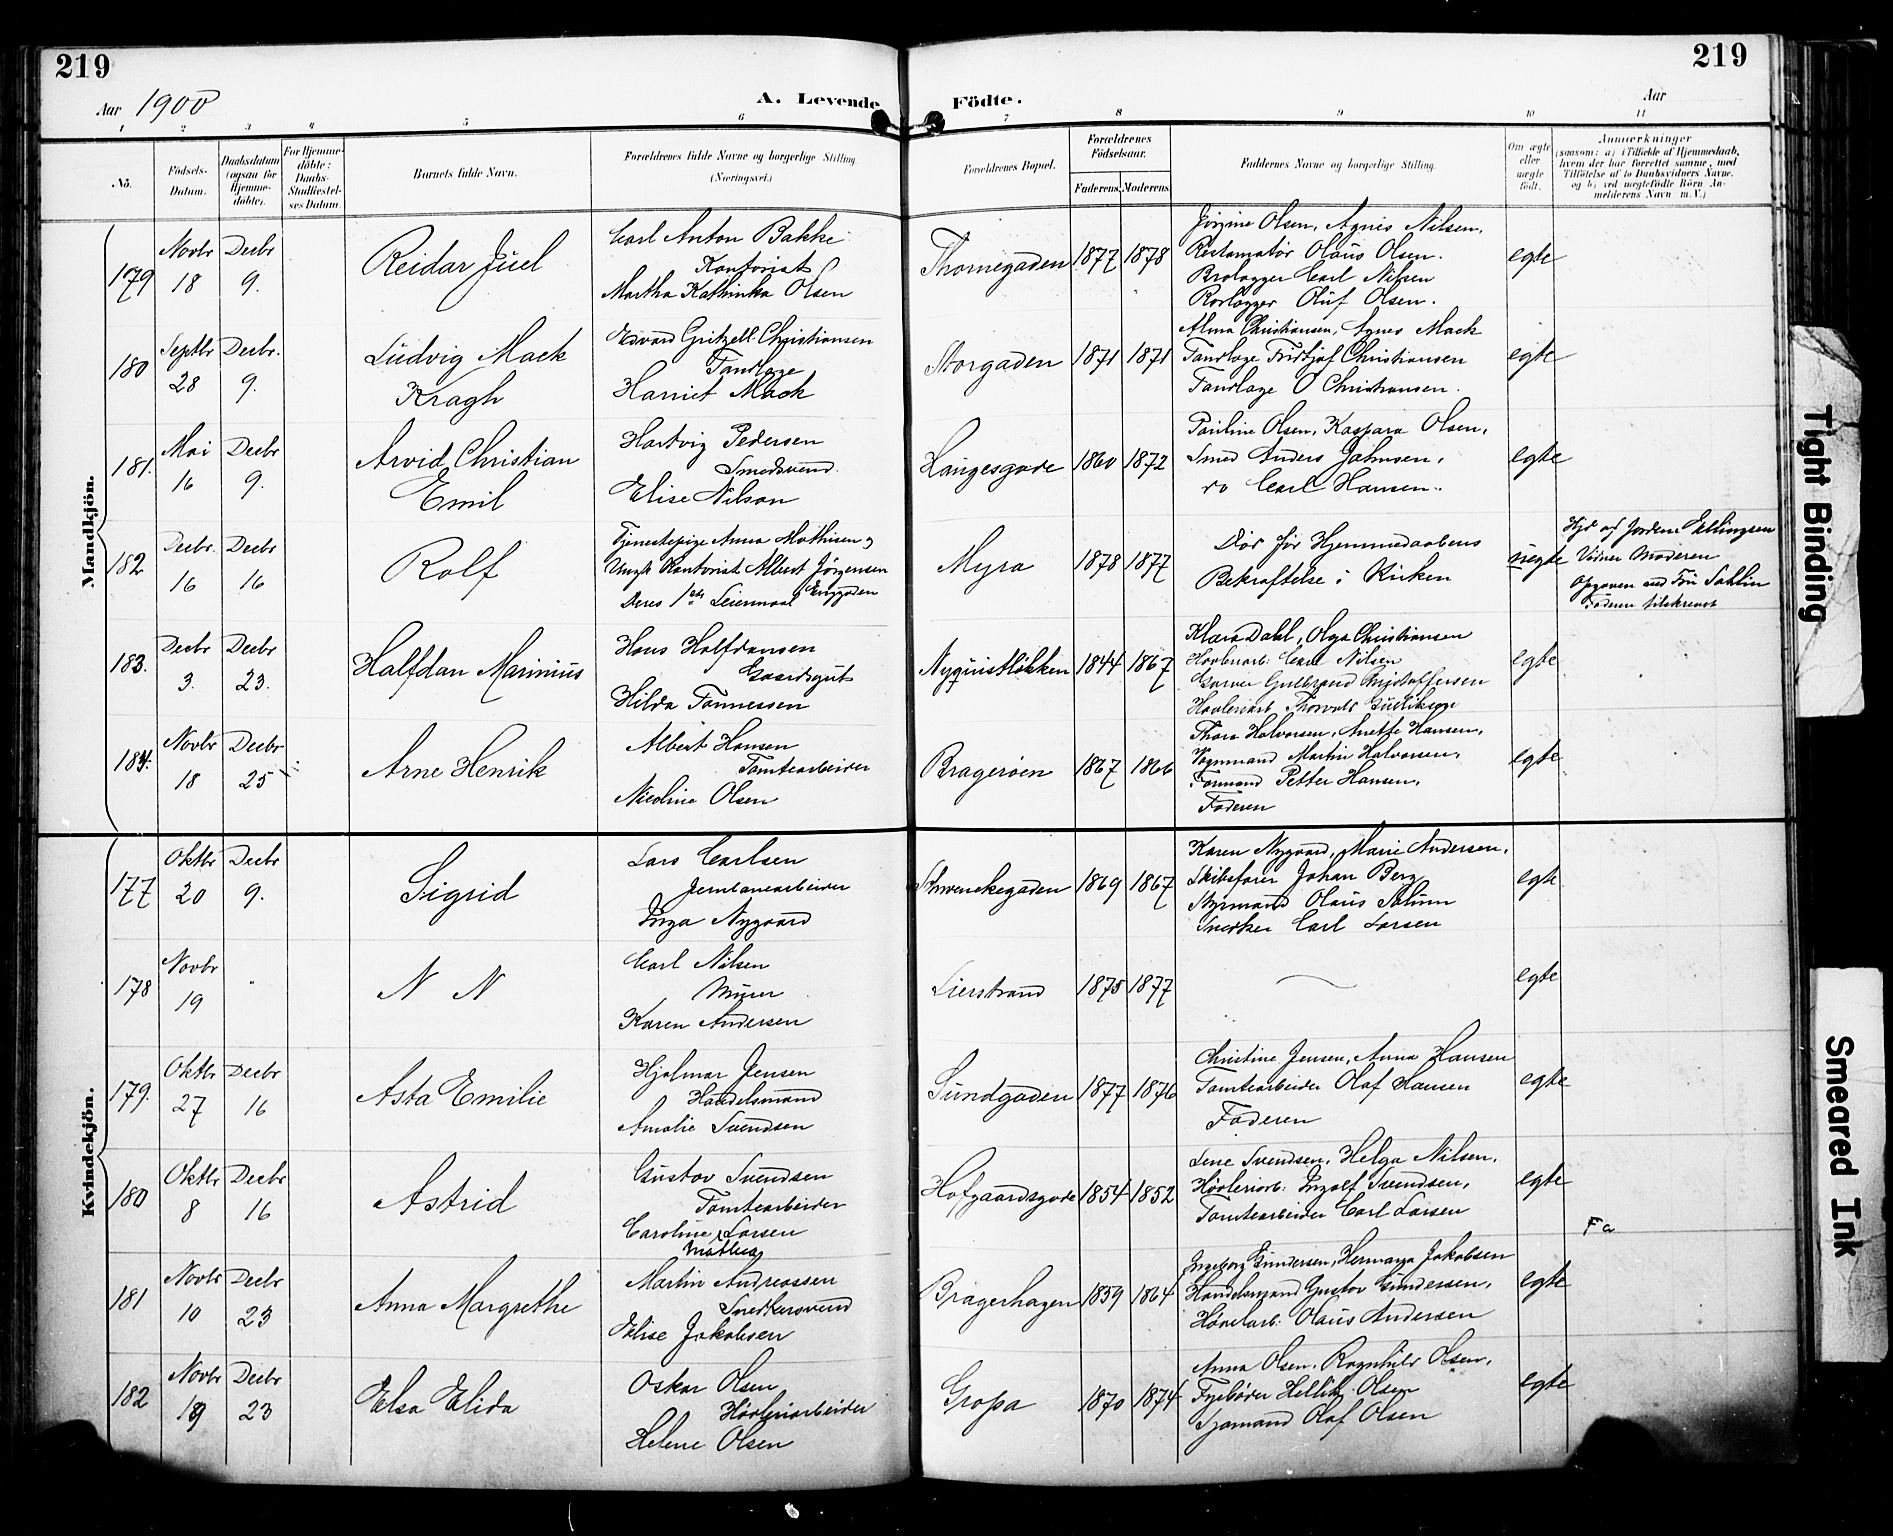 219
219
Aar 1900
A. Levende Födte.
Aar
1 2 3 4 5 6 7 8 9 10 11
No.
Födsels-Datum.
Daabsdatum (ogsaa for Hjemmedöbte).
For Hjemmedöbte: Daabs-Stadfæstelses Datum.
Barnets fulde Navn.
Forældrenes fulde Navne og borgerlige Stilling. (Næringsvei.)
Forældrenes Bopæl.
Forældrenes Födselsaar.
Faderens. Moderens.
Faddernes Navne og borgerlige Stilling.
Om ægte eller uægte födt.
Anmærkninger
(saasom: a) i Tilfælde af Hjemmedaab, hvem der har forrettet samme, med Tilföielse af to Daabsvidners Navne, og b) ved uægtefödte Börn Anmelderens Navn m. V.)
Mandkjön.
179 Novbr 18 Decbr 9. Reidar Juel
Carl Anton Bakke
Kontorist
Martha Kathinka Olsen
Thornegaden 1877 1878
Jörgine Olsen, Agnes Nilsen,
Olaus Olsen.
Carl Nilsen
Rörlægger Oluf Olsen.
egte
180 Septbr 28 Decbr. 9. Ludvig Mack Kragh
Edvard Gritzell Christiansen
Tandlæge
Harriet Mack
Storgaden 1871 1871
Alma Christiansen, Agnes Mack
Tandlæge Fridtjof Christiansen
Tandlæge O Christiansen.
egte
181. Mai 16 Decbr 9. Arvid Christian Emil
Hartvig Pedersen
Smedsvend
Elise Nilsen
Haugesgade 1860 1872
Pauline Olsen, Kaspara Olsen,
Smed Anders Johnsen,
do Carl Hansen.
egte
182 Decbr. 16 Decbr 16 Rolf
Tjenestepige Anna Mathisen og
Ungk Kontorist Albert Jörgensen
Enggaden
Deres 1ste Leiermaal
Myra 1878 1877
Död för Hjemmedaabens
Bekræftelse i Kirken
uegte
Hjd af Jordem Ellingsen
Vidner Moderen
Opgaven ved Frk Sahlin
Faderen tilskrevet
183. Decbr 3. Decbr 23. Halfdan Marinius
Hans Halfdansen
Gaardsgut
Hilda Tönnessen
Nyquistlökken 1844 1867
Klara Dahl, Olga Christiansen
Hövleriarb: Carl Nilsen
Garver Gulbrand Kristoffersen
Hövleriarb Thorvald Gulliksen
egte
184. Novbr 18 Decbr 25 Arne Henrik
Albert Hansen
Tomtearbeider
Nicoline Olsen
Bragerøen 1867 1866
Thora Halvorsen, Anette Hansen,
Vognmand Martin Halvorsen,
Formand Petter Hansen,
Faderen
egte
Kvindekjön.
177 Oktbr 20 Decbr 9. Sigrid
Lars Carlsen
Jernbanearbeider
Inga Nygaard
Schwenckegaden 1869 1867
Karen Nygaard, Marie Andersen,
Skibsförer Johan Berg
Styrmand Olaus Solum
Snedker Carl Larsen
egte
178 Novbr 19 " N N
Carl Nilsen
Murer
Karen Andersen
Lierstrand 1875 1877
egte
179. Oktbr 27 Decbr 16 Asta Emilie
Hjalmar Jensen
Handelsmand
Amalie Svendsen
Sundgaden 1877 1876
Christine Jensen, Anna Hansen
Tomtearbeider Olaf Hansen
Faderen
egte
180 Oktbr 8 Decbr 16 Astrid
Gustav Svendsen
Tomtearbeider
Caroline Larsen
Mathea
Hofgaardsgade 1854 1852
Lene Svendsen, Helga Nilsen,
Hövleriarb: Ingolf Svendsen,
Tomtearbeider Carl Larsen
egte
Fa
181 Novbr 10 Decbr 23 Anna Margrethe
Martin Andreassen
Snedkersvend
Elise Jakobsen
Bragerhagen 1859 1864
Ingeborg Gundersen, Hermana Jakobsen
Handelsmand Gustav Gundersen,
Hövelarb: Olaus Andersen
egte
182 Novbr 19 Decbr 23 Elsa Elida
Oskar Olsen
Hövleriarbeider
Helene Olsen
Gropa 1870 1874
Anna Olsen, Ragnhild Olsen,
Fyrböder Hellik Olsen
Sjömand Olaf Olsen
egte
Tight Binding
Smeared Ink